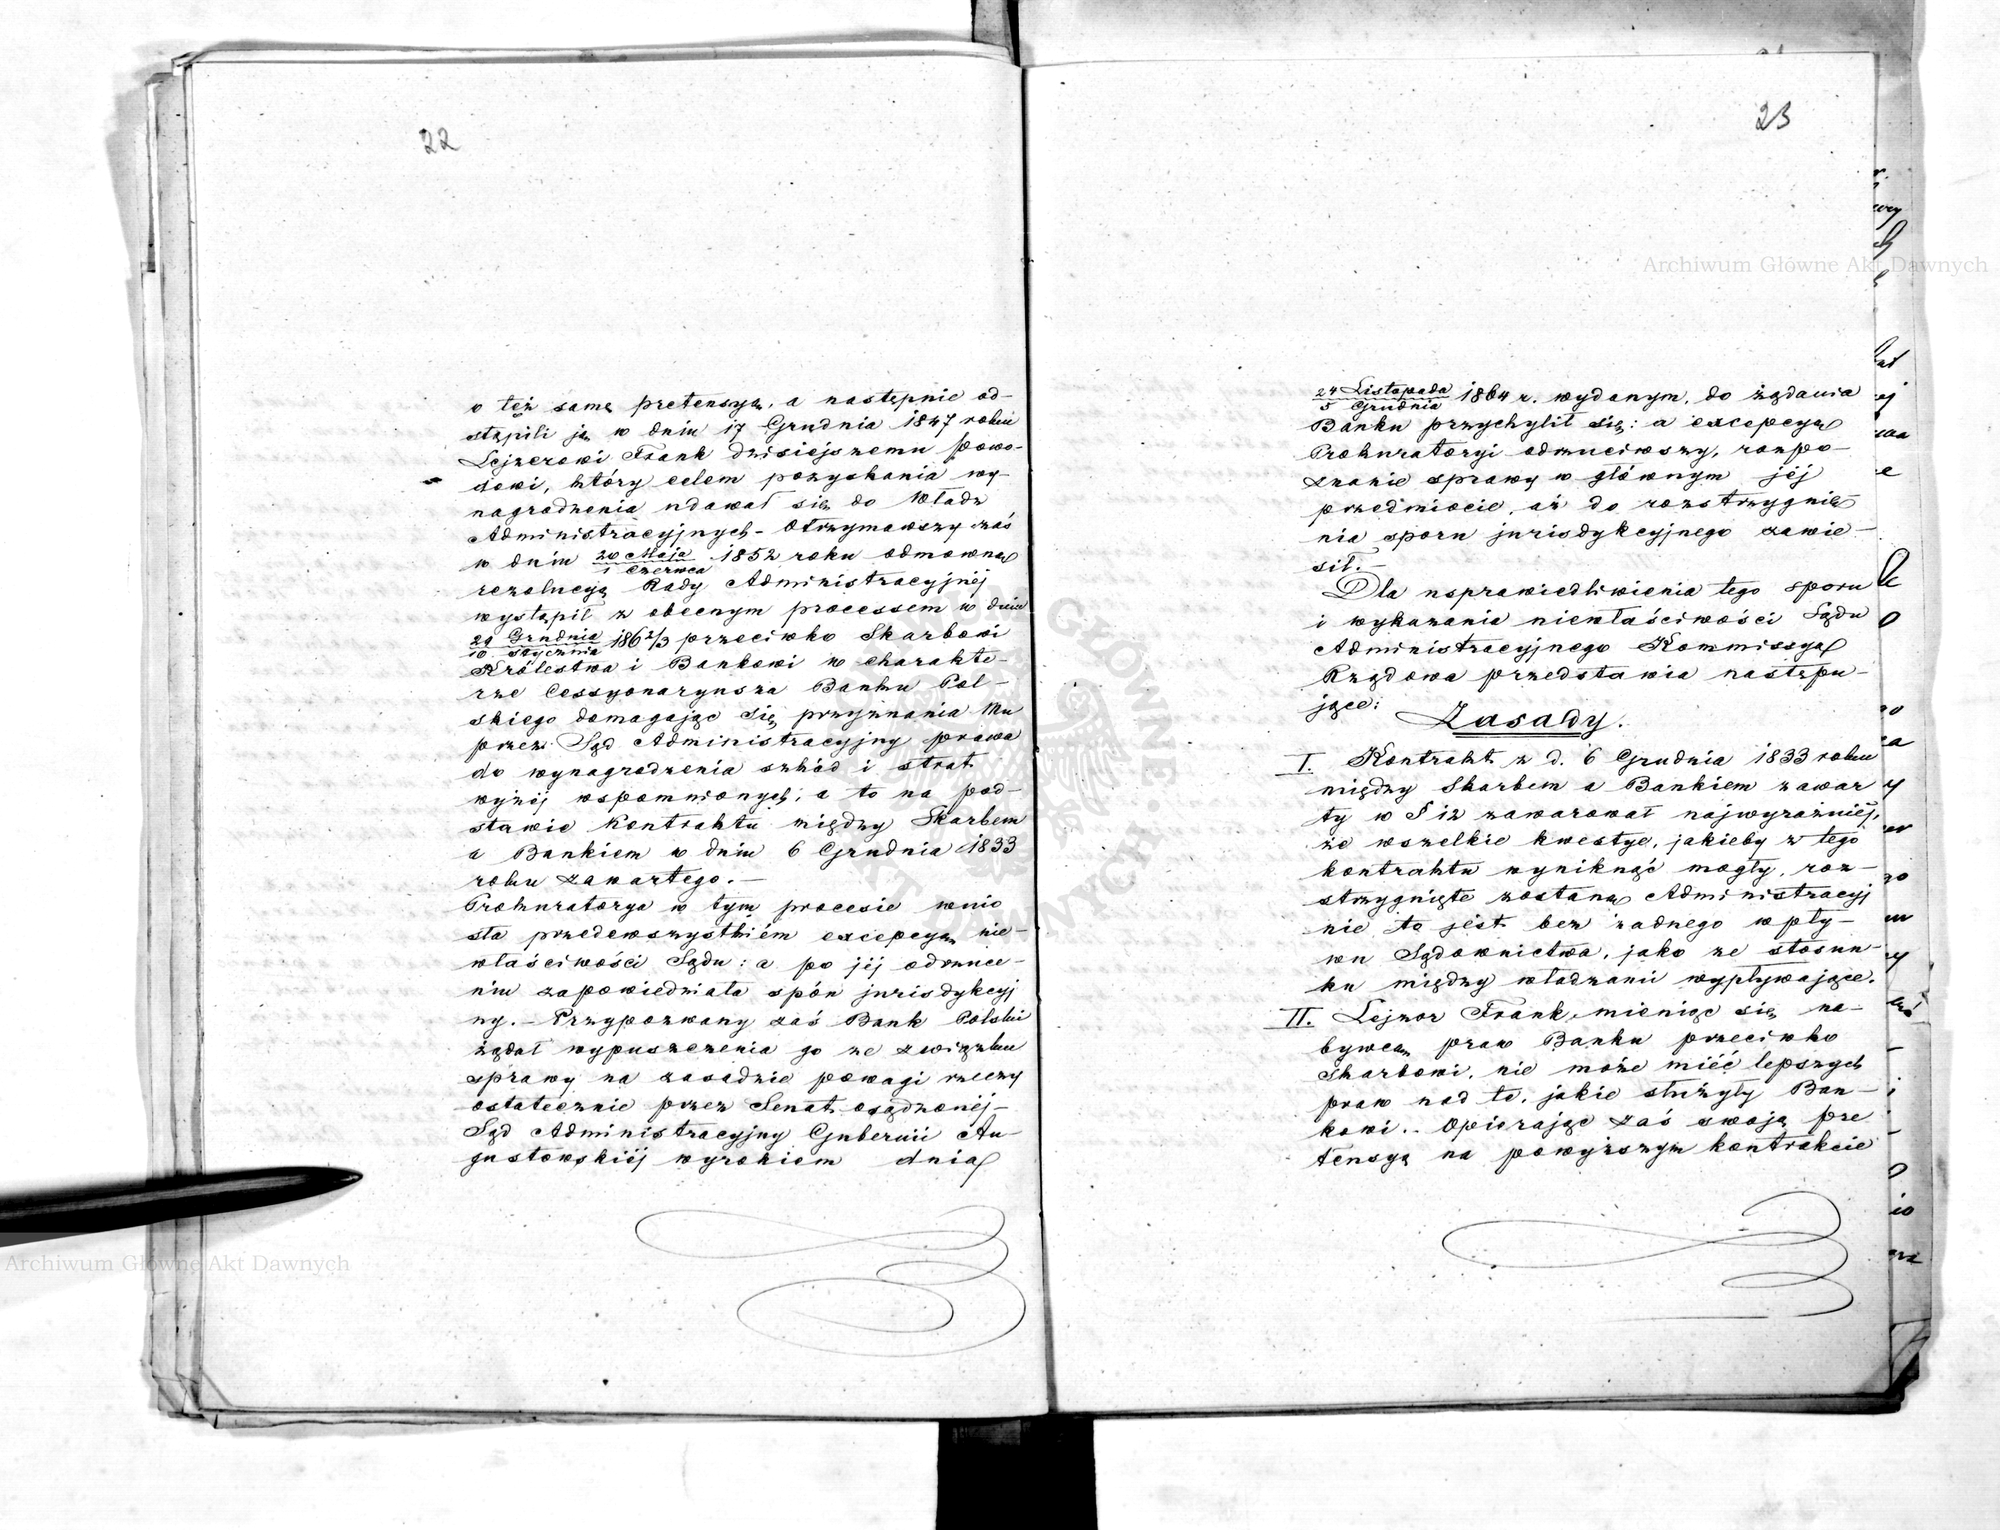 22
o też samę pretensyą, a następnie od-
stąpili ją w dniu 17 Grudnia 1847 roku
Lejzerowi Frank dzisiejszemu powo-
dowi, który celem pozyskania wy-
nagrodzenia udawał się do Władz
Administracyjnych - Otrzymawszy zaś
w dniu 20 Maja / 1 Czerwca 1852 roku odmowną
rezolucyą Rady Administracyjnéj
wystąpił z obecnym processem w dniu
29 Grudnia / 10 Stycznia 186 2/3 przeciwko Skarbowi
Królestwa i Bankowi w charakte-
rze Cessyonaryusza Banku Pol-
skiego domagając się przyznania Mu
przez Sąd Administracyjny prawa
do wynagrodzenia szkód i strat
wyżéj wspomnionych; a to na pod-
stawie Kontraktu między Skarbem
a Bankiem w dniu 6 Grudnia 1833
roku zawartego. -
Prokuratorya w tym procesie wnio
sła przedewszystkiém excepcyą nie-
właściwości Sądu: a po jéj odrzuce-
niu zapowiedziała spór jurisdykcyj
ny. - Przypozwany zaś Bank Polski
żądał wypuszczenia go ze związku
sprawy na zasadzie powagi rzeczy
ostatecznie przez Senat osądzonéj -
Sąd Administracyjny Gubernii Au-
gustowskiéj wyrokiem dnia
23
24 Listopada / 5 Grudnia 1864 r. wydanym, do żądania
Banku przychylił się: a excepcyą
Prokuratoryi odrzuciwszy, rozpo-
znanie sprawy w głównym jéj
przedmiocie, aż do rozstrzygnię-
nia sporu jurisdykcyjnego zawie-
sił. -
Dla usprawiedliwienia tego sporu
i wykazania niewłaściwości Sądu
Administracyjnego Kommissya
Rządowa przedstawia następu-
jące:
Zasady.
I. Kontrakt z d. 6 Grudnia 1833 roku
między Skarbem a Bankiem zawar
ty w § 12 zawarował najwyraźniéj,
że wszelkie kwestye, jakieby z tego
kontraktu wyniknąć mogły, roz-
strzygnięte zostaną Administracyj
nie to jest bez żadnego wpły-
wu Sądownictwa, jako ze stosun-
ku między władzami wypływające.
II. Lejzor Frank, mieniąc się na-
bywcą praw Banku przeciwko
Skarbowi, nie może mieć lepszych
praw nad te, jakie służyły Ban-
kowi. - Opierając zaś swoją pre
tensyą na powyższym kontrakcie
Archiwum Główne Akt Dawnych
Archiwum Główne Akt Dawnych